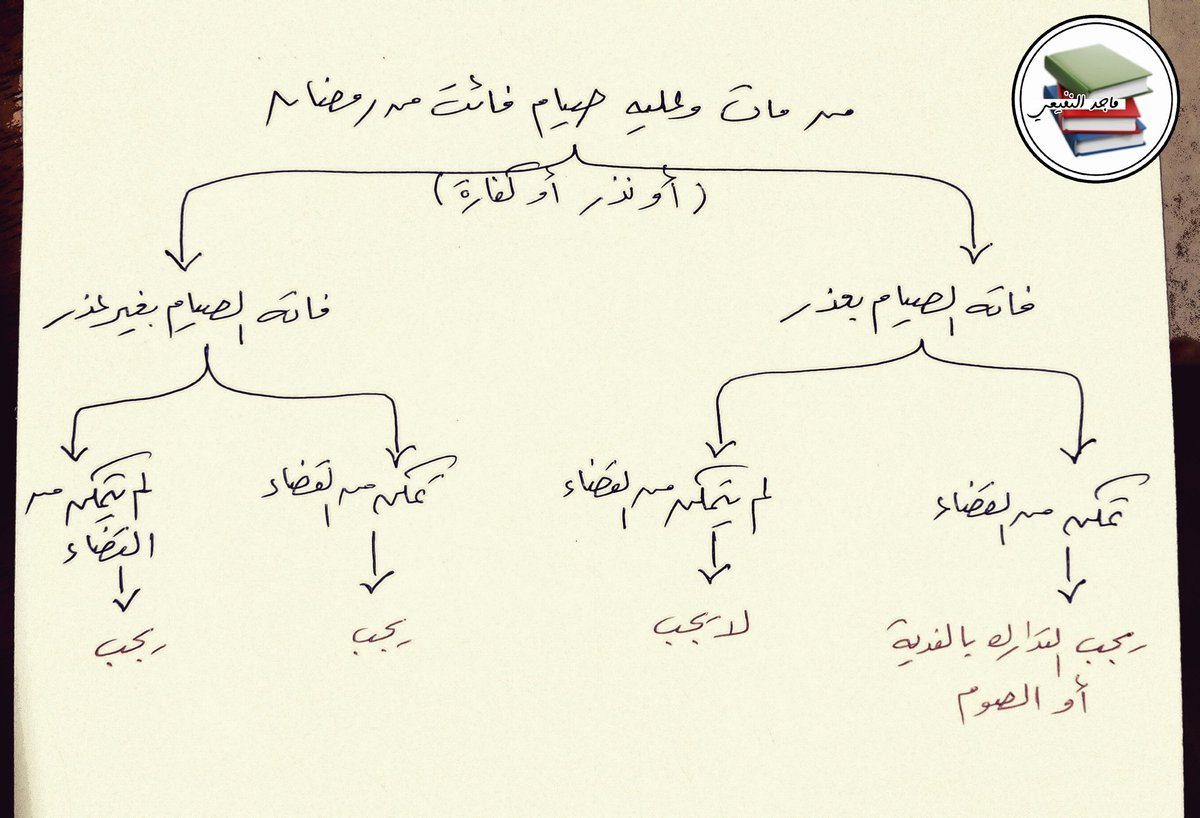 من مات وعليه صيام فائت من رمضان
(أو نذر أو كفارة)
فاته الصيام بعذر
تمكن من القضاء
يجب التدارك بالفدية
أو الصوم
لم يتمكن من القضاء
لا يجب
فاته الصيام بغير عذر
تمكن من القضاء
يجب
لم يتمكن من
القضاء
يجب
ماجد النفيعي